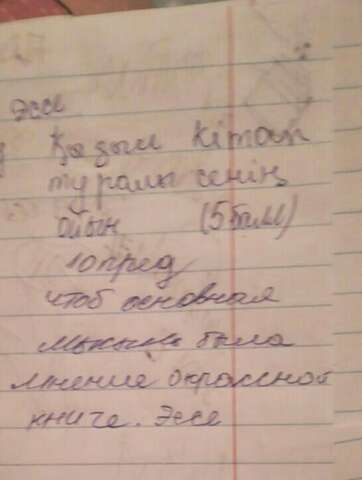 Эссе
Қызыл кітап
туралы сенің
ойың (5балл)
10пред
чтоб основная
была
мнение о красной
книге. Эссе